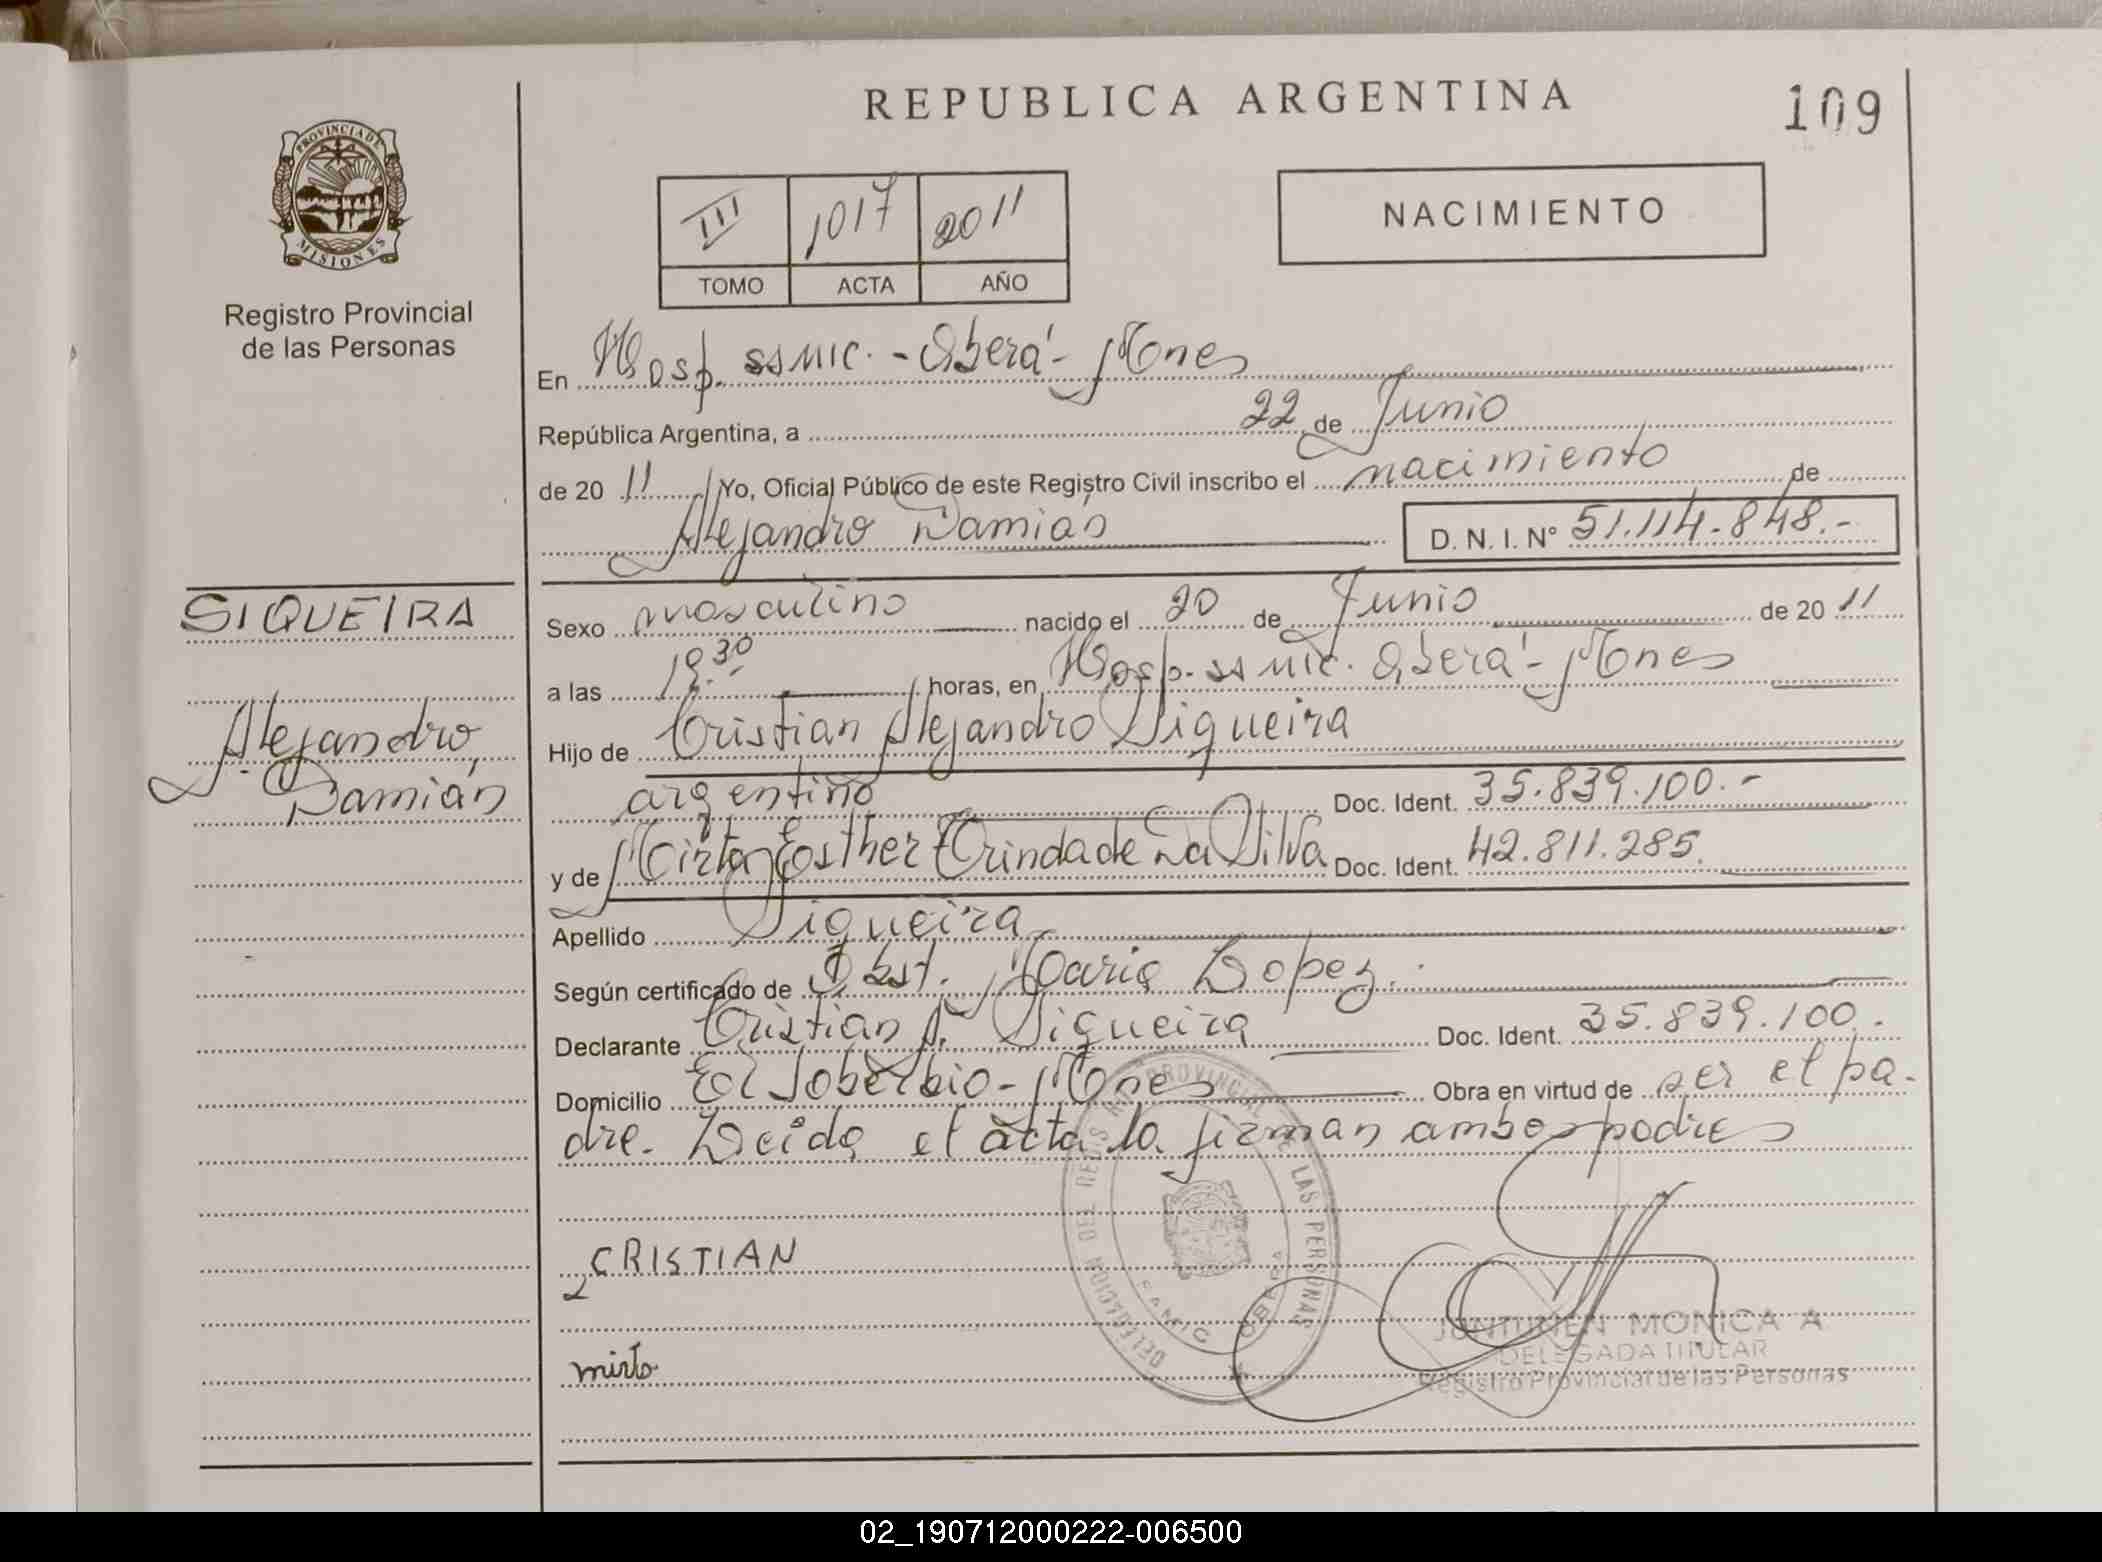 REPUBLICA ARGENTINA
109
PROVINCIA DE
MISIONES
Registro Provincial
de las Personas
III 1017 2011
TOMO ACTA AÑO
NACIMIENTO
En Hosp. SSMIC. - Oberá - Mones
República Argentina, a 22 de Junio
de 20 11 Yo, Oficial Público de este Registro Civil inscribo el nacimiento de
Alejandro Damián
D. N. I. N° 51.114.848.-
SIQUEIRA
Alejandro
Damián
Sexo masculino nacido el 20 de Junio de 20 11
a las horas, en Hosp. SSMIC. Oberá - Mones
Hijo de Cristian Alejandro Siqueira
argentino Doc. Ident. 35.839.100.-
y de Mirta Esther Trindade Da Silva Doc. Ident. 42.811.285.
Apellido Siqueira
Según certificado de Obst. Maria Lopez.
Declarante Cristian A. Siqueira Doc. Ident. 35.839.100.-
Domicilio El Soberbio - Mones Obra en virtud de ser el pa-
dre. Leida el acta la firman ambos padres
CRISTIAN
mirta
DELEGACION DEL REGISTRO PROVINCIAL DE LAS PERSONAS
OBERA
JUNTUNEN MONICA A
DELEGADA TITULAR
Registro Provincial de las Personas
02_190712000222-006500